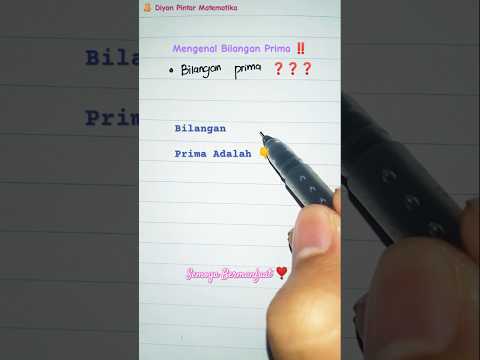 Diyan Pintar Matematika
Mengenal Bilangan Prima ‼️
• Bilangan prima ❓❓❓
Bilangan
Prima Adalah 👇
Semoga Bermanfaat ❣️